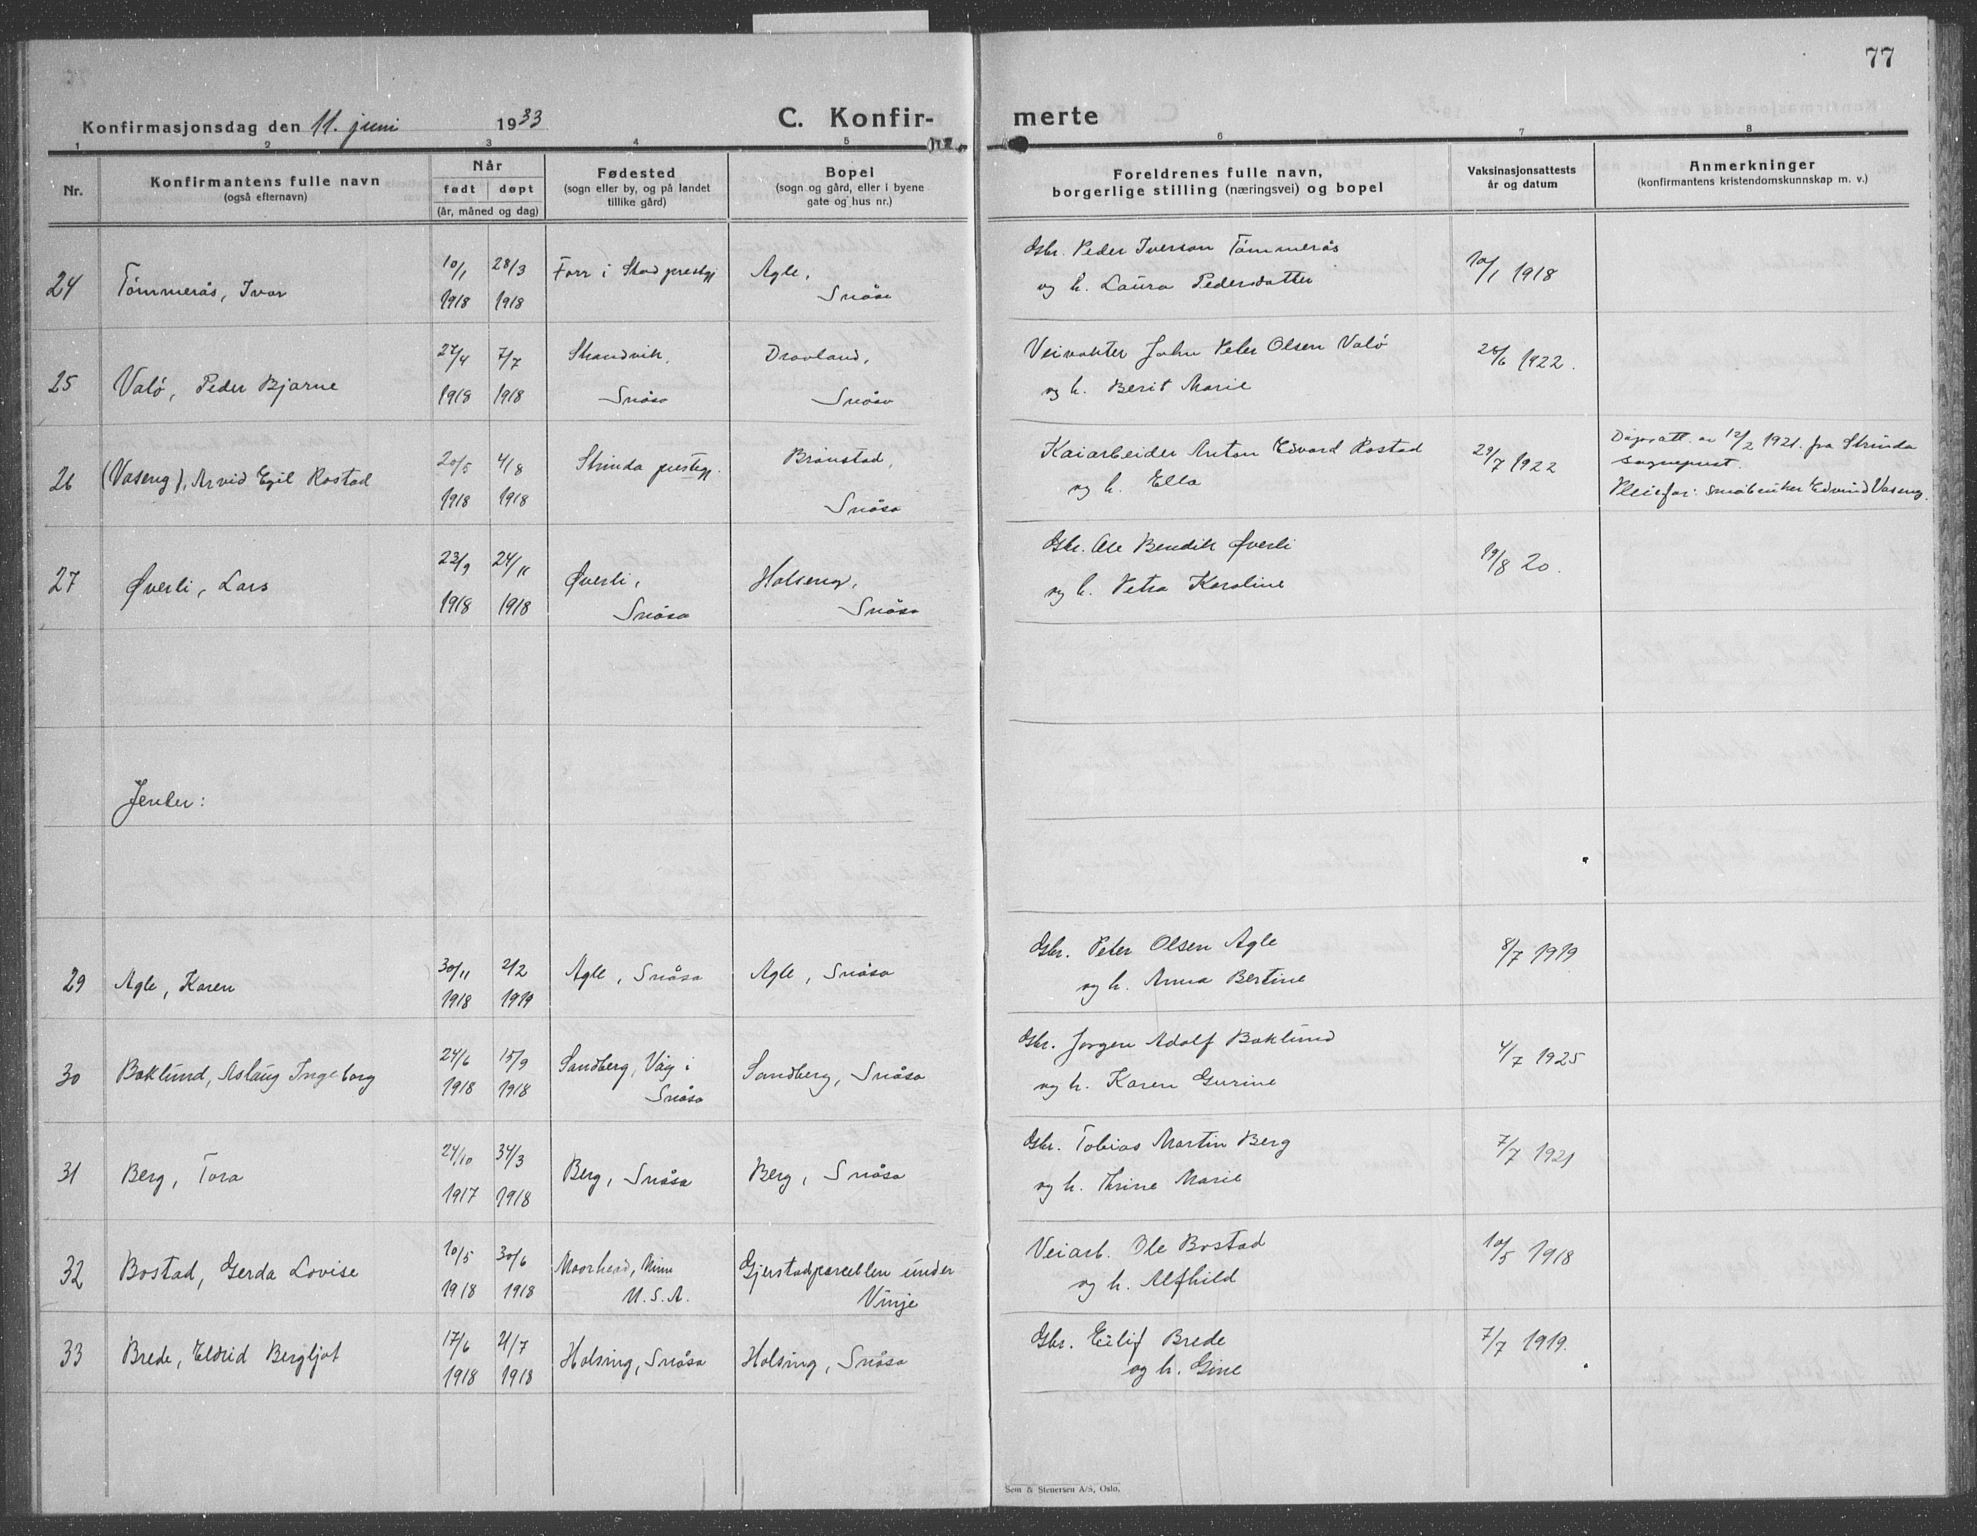 77
Konfirmasjonsdag den 11. juni 1933
C. Konfir-
merte
1 2 3 4 5 6 7 8
Nr.
Konfirmantens fulle navn
(også efternavn)
Når
født døpt
(år, måned og dag)
Fødested
(sogn eller by, og på landet
tillike gård)
Bopel
(sogn og gård, eller i byene
gate og hus nr.)
Foreldrenes fulle navn,
borgerlige stilling (næringsvei) og bopel
Vaksinasjonsattests
år og datum
Anmerkninger
(konfirmantens kristendomskunnskap m. v.)
24 Tømmerås, Ivar
10/1 1918
28/3 1918
Forr i Stod prestgj
Agle,
Snåsa
Gbr. Peder Iversen Tømmerås
og h. Laura Pedersdatter
10/1 1918
25 Valø, Peder Bjarne
27/4 1918
7/7 1918
Strandvik,
Snåsa
Dravland,
Snåsa
Veivokter John Peter Olsen Valø
og h. Berit Marie
26/6 1922.
26 (Vaseng), Arvid Egil Rostad
20/5 1918
4/8 1918
Strinda prestegj.
Brønstad,
Snåsa
Kaiarbeider Anton Edvard Rostad
og h. Ella
29/7 1922
Dåpsatt. av 12/2 1921. fra Strinda
sogneprest.
Pleiefar: småbruker Edvind Vaseng.
27 Øverli, Lars
23/9 1918
24/11 1918
Øverli,
Snåsa
Holseng,
Snåsa
Gbr. Ole Bendik Øverli
og h. Petra Karoline
19/8 20.
Jenter:
29 Agle, Karen
30/11 1918
2/2 1919
Agle, Snåsa
Agle, Snåsa
Gbr. Peter Olsen Agle
og h. Anna Bertine
8/7 1919
30 Baklund, Aslaug Ingeborg
24/6 1918
15/9 1918
Sandberg, Våg i
Snåsa
Sandberg, Snåsa
Gbr. Jørgen Adolf Baklund
og h. Karen Gurine
4/7 1925
31 Berg, Tora
24/10 1917
34/3 1918
Berg, Snåsa
Berg, Snåsa
Gbr. Tobias Martin Berg
og h. Trine Marie
7/7 1921
32 Bostad, Gerda Lovise
10/5 1918
30/6 1918
Moorhead, Minn
U.S.A.
Gjerstadparcellen under
Vinje
Veiarb. Ole Bostad
og h. Alfhild
10/5 1918
33 Brede, Eldrid Bergljot
17/6 1918
21/7 1918
Holsing, Snåsa
Holsing, Snåsa
Gbr. Eilif Brede
og h. Gine
7/7 1919.
Sem & Stenersen A/S, Oslo.